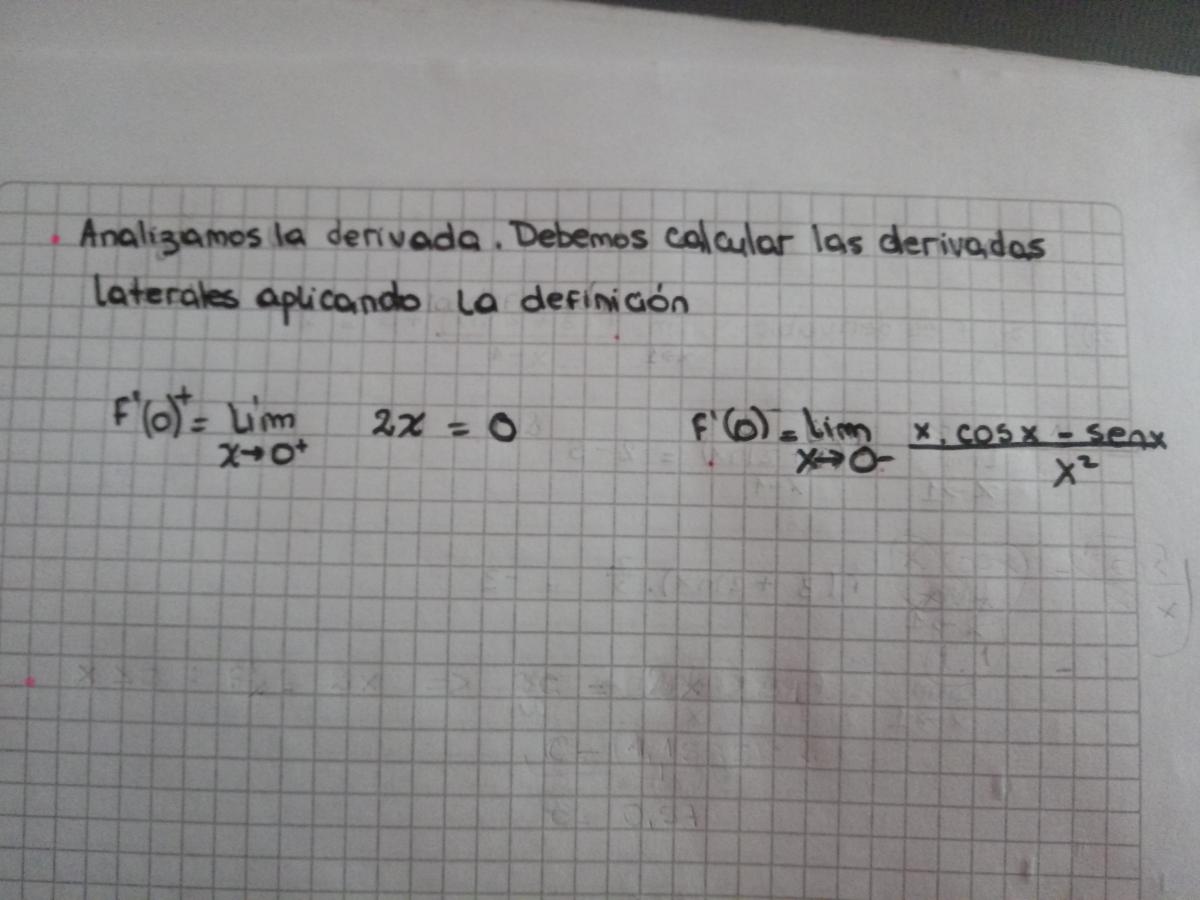 . Analizamos la derivada. Debemos calcular las derivadas
laterales aplicando la definición
F'(0)⁺ = Lim 2x = 0
x→0⁺
F'(0)⁻ = Lim x . cosx - senx
x→0- x²